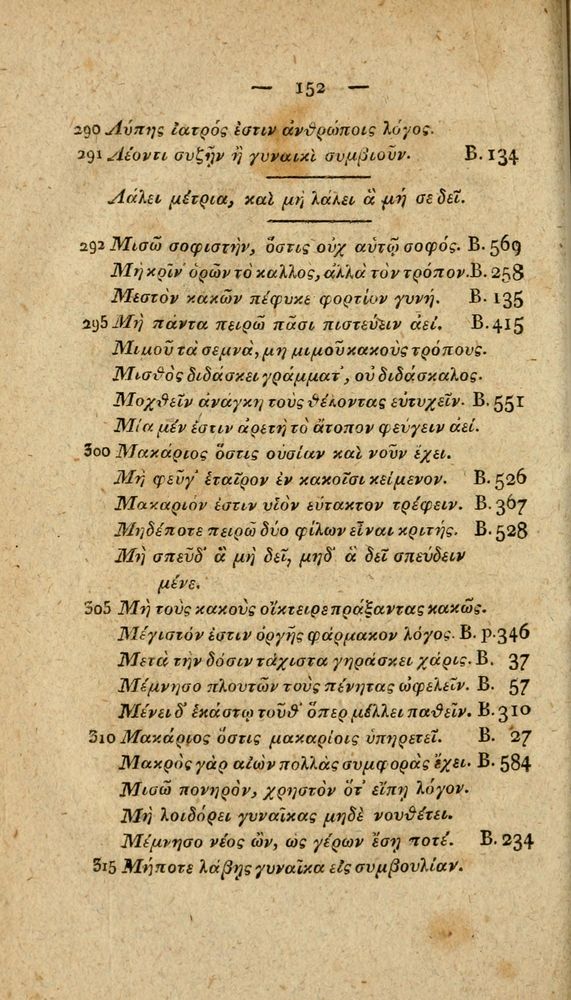 — 152 —
290 Λύπης ἰατρός ἐστιν ἀνθρώποις λόγος.
291 Λέοντι συζῇν ἢ γυναικὶ συμβιοῦν. B. 134
Λάλει μέτρια, καὶ μὴ λάλει ἃ μή σε δεῖ.
292 Μισῶ σοφιστὴν, ὅστις οὐχ αὑτῷ σοφός. B. 569
Μὴ κρῖν' ὁρῶν τὸ καλλος, ἀλλὰ τὸν τρόπον. B. 258
Μεστὸν κακῶν πέφυκε φορτίον γυνή. B. 135
295 Μὴ πάντα πειρῶ πᾶσι πιστεύειν ἀεί. B. 415
Μιμοῦ τὰ σεμνὰ, μη μιμοῦ κακοὺς τρόπους.
Μισθὸς διδάσκει γράμματ', οὐ διδάσκαλος.
Μοχθεῖν ἀνάγκη τοὺς θέλοντας εὐτυχεῖν. B. 551
Μία μέν ἐστιν ἀρετὴ τὸ ἄτοπον φεύγειν ἀεί.
300 Μακάριος ὅστις οὐσίαν καὶ νοῦν ἔχει.
Μὴ φεῦγ' ἑταῖρον ἐν κακοῖσι κείμενον. B. 526
Μακαριόν ἐστιν υἱὸν εὔτακτον τρέφειν. B. 367
Μηδέποτε πειρῶ δύο φίλων εἶναι κριτής. B. 528
Μὴ σπεῦδ' ἃ μὴ δεῖ, μηδ' ἃ δεῖ σπεύδειν
μένε.
305 Μὴ τοὺς κακοὺς οἴκτειρε πράξαντας κακῶς.
Μέγιστόν ἐστιν ὀργῆς φάρμακον λόγος. B. p. 346
Μετὰ τὴν δόσιν τάχιστα γηράσκει χάρις. B. 37
Μέμνησο πλουτῶν τοὺς πένητας ὠφελεῖν. B. 57
Μένει δ' ἑκάστῳ τοῦθ' ὅπερ μέλλει παθεῖν. B. 310
310 Μακάριος ὅστις μακαρίοις ὑπηρετεῖ. B. 27
Μακρὸς γὰρ αἰὼν πολλὰς συμφορὰς ἔχει. B. 584
Μισῶ πονηρὸν, χρηστὸν ὅτ' εἴπῃ λόγον.
Μὴ λοιδόρει γυναῖκας μηδὲ νουθέτει.
Μέμνησο νέος ὢν, ὡς γέρων ἔσῃ ποτέ. B. 234
315 Μήποτε λάβῃς γυναῖκα εἰς συμβουλίαν.